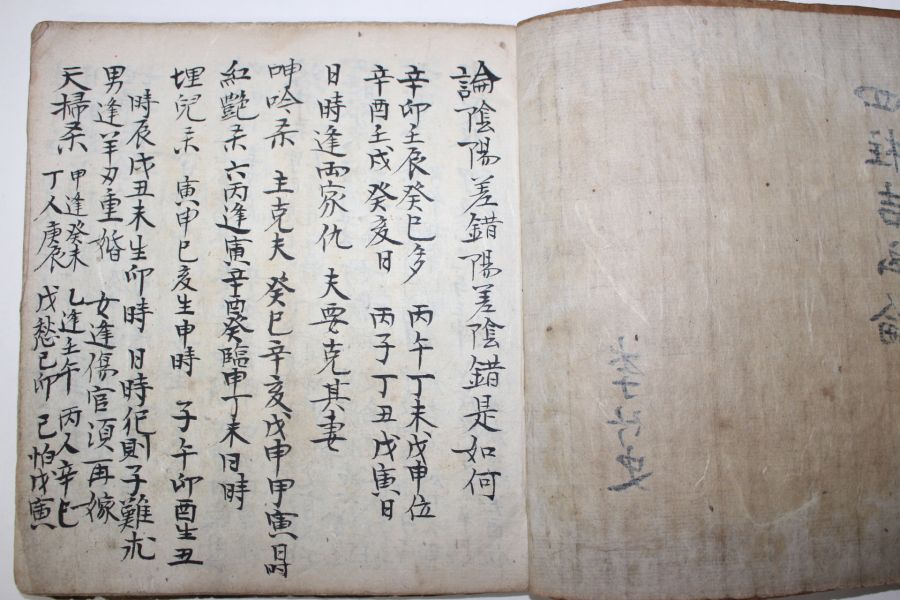 論陰陽差錯陽差陰錯是如何
辛卯壬辰癸巳多 丙午丁未戊申位
辛酉壬戌癸亥日 丙子丁丑戊寅日
日時逢両家仇 夫要克其妻
呻吟杀 主克夫 癸巳辛亥戊申甲寅日時
紅艶杀 六丙逢寅辛酉癸臨申丁未日時
埋兒杀 寅申巳亥生申時 子午卯酉生丑
時辰戌丑未生卯時 日時犯則子難
男逢羊刃重婚 女逢傷官須再嫁
天掃杀 甲逢癸未 乙逢壬午 丙人辛巳
丁人庚辰 戊愁己卯 己怕戊寅